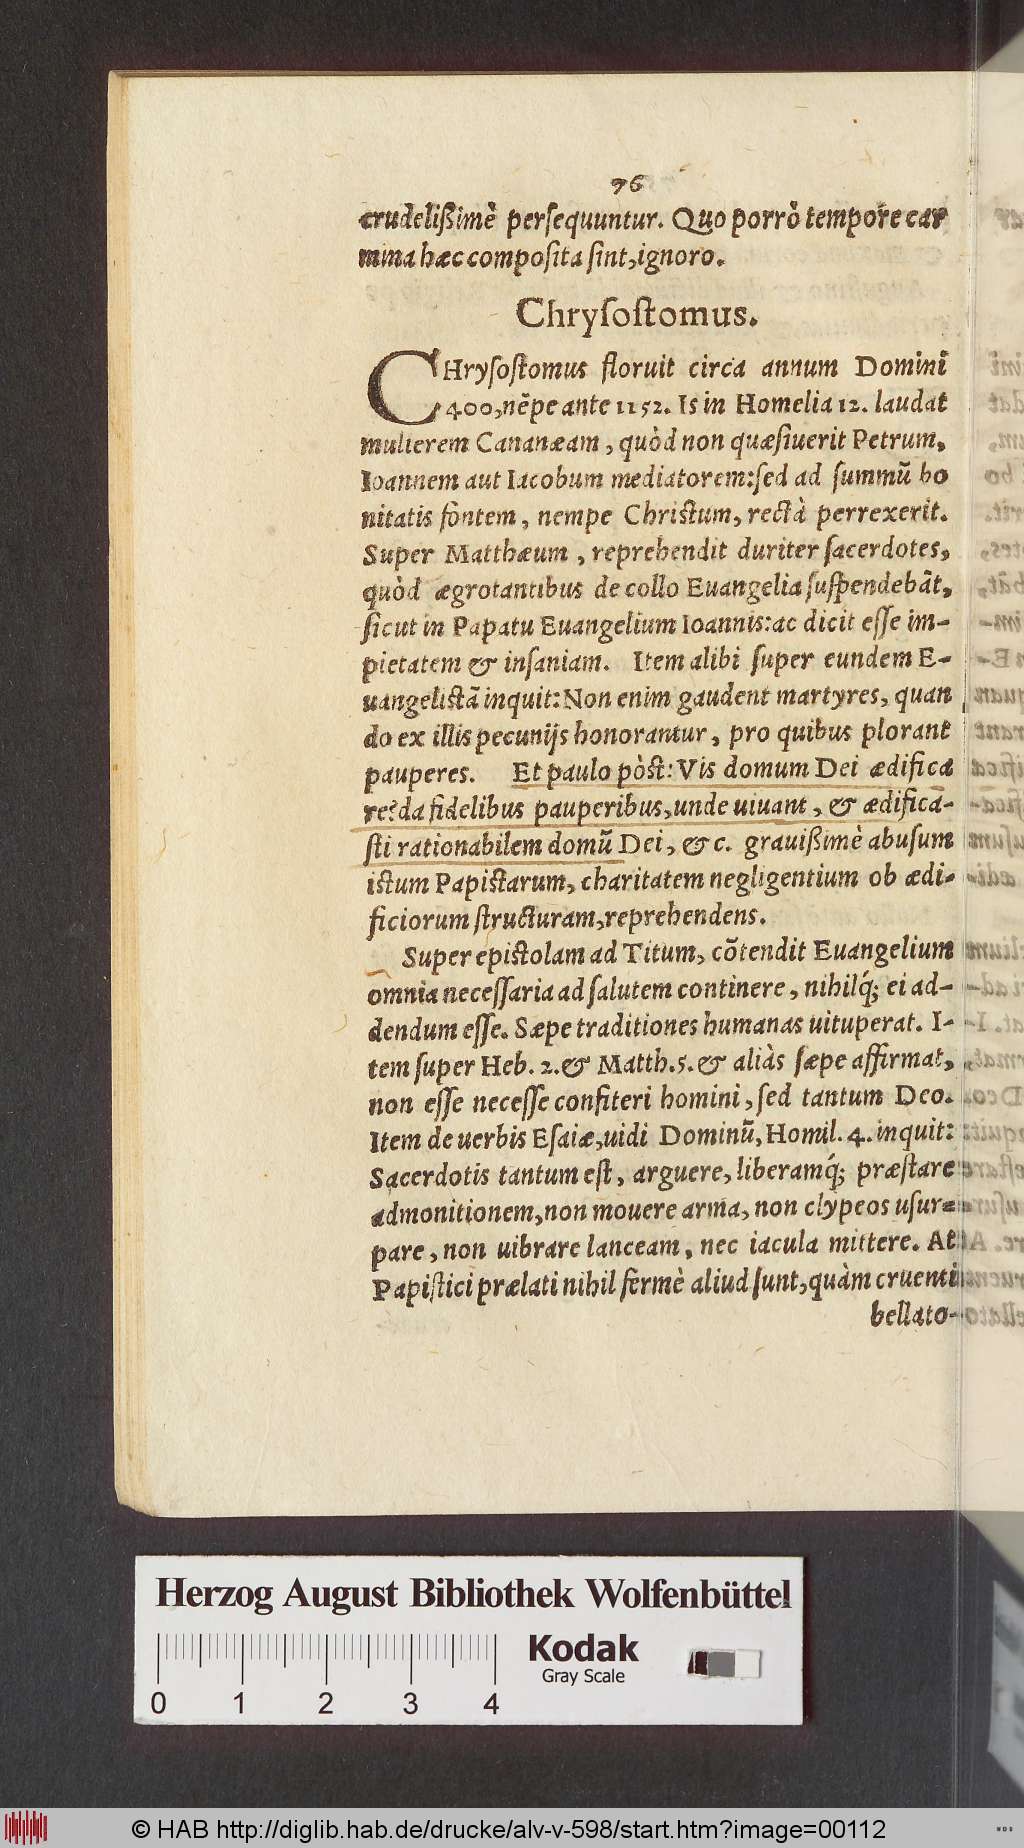 96
crudelißimè persequuntur. Quo porrò tempore car
mina hæc composita sint, ignoro.
Chrysostomus.
CHrysostomus floruit circa annum Domini
400, nẽpe ante 1152. Is in Homelia 12. laudat
mulierem Cananæam, quòd non quæsiuerit Petrum,
Ioannem aut Iacobum mediatorem: sed ad summũ bo
nitatis fontem, nempe Christum, rectà perrexerit.
Super Matthæum, reprehendit duriter sacerdotes,
quòd ægrotantibus de collo Euangelia suspendebãt,
sicut in Papatu Euangelium Ioannis: ac dicit esse im-
pietatem & insaniam. Item alibi super eundem E-
uangelistã inquit: Non enim gaudent martyres, quan
do ex illis pecunijs honorantur, pro quibus plorant
pauperes. Et paulo pòst: Vis domum Dei ædifica
re? da fidelibus pauperibus, unde uiuant, & ædifica-
sti rationabilem domũ Dei, & c. grauißimè abusum
istum Papistarum, charitatem negligentium ob ædi-
ficiorum structuram, reprehendens.
Super epistolam ad Titum, cõtendit Euangelium
omnia necessaria ad salutem continere, nihilq́; ei ad-
dendum esse. Sæpe traditiones humanas uituperat. I-
tem super Heb. 2. & Matth. 5. & aliàs sæpe affirmat,
non esse necesse confiteri homini, sed tantum Deo.
Item de uerbis Esaiæ, uidi Dominũ, Homil. 4. inquit:
Sacerdotis tantum est, arguere, liberamq́; præstare
admonitionem, non mouere arma, non clypeos usur-
pare, non uibrare lanceam, nec iacula mittere. At
Papistici prælati nihil fermè aliud sunt, quàm cruenti
bellato-
Herzog August Bibliothek Wolfenbüttel
Kodak
Gray Scale
0 1 2 3 4
© HAB http://diglib.hab.de/drucke/alv-v-598/start.htm?image=00112